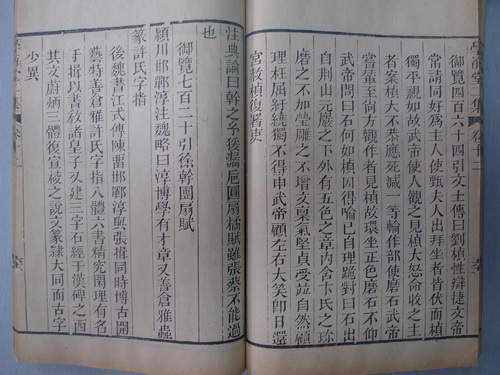 御覽四百六十四引文士傳曰劉楨性辯捷文帝
常請同好為主人使甄夫人出拜坐者皆伏而楨
獨平視如故武帝使人觀之見楨大怒命收之主
者案楨大不恭應死減一等輸作部使磨石武帝
嘗輦至尚方觀作者見楨故環坐正色磨石不仰
武帝問曰石何如楨因得喻已自理跪對曰石出
自荆山元巖之下外有五色之章內含卞氏之珍
磨之不加瑩雕之不增文稟氣堅貞受茲自然顧
理枉屈紆繞獨不得申武帝顧左右大笑卽日還
宮赦楨復署吏
注典論曰幹之予猨漏卮圓扇橘賦雖張蔡不能過
也
御覽七百二十引徐幹團扇賦
潁川邯鄲淳注魏略曰淳博學有才章又善倉雅蟲
篆許氏字指
後魏書江式傳陳畱邯鄲淳與張揖同時博古開
藝特善倉雅許氏字指八體六書精究閑理有名
于揖以書教諸皇子又建三字石經于漢碑之西
其文蔚炳三體復宣校之說文篆隸大同而古字
少異